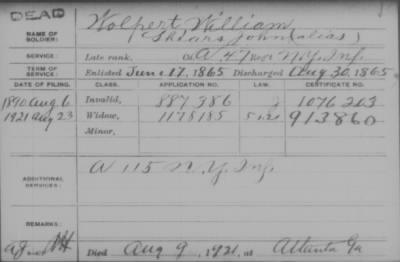 DEAD
NAME OF SOLDIER: Wolpert William
(Shears John alias)
SERVICE: Late rank, Co. A 47 Reg't N.Y. Inf.
TERM OF SERVICE: Enlisted June 17, 1865 Discharged Aug 30, 1865
DATE OF FILING. CLASS. APPLICATION NO. LAW. CERTIFICATE NO.
1890 Aug 6 Invalid, 887286 1076203
1921 Aug 23 Widow, 1178185 913860
Minor,
ADDITIONAL SERVICES: A 115 N.Y. Inf.
REMARKS:
Died Aug 9, 1921, at Atlanta Ga